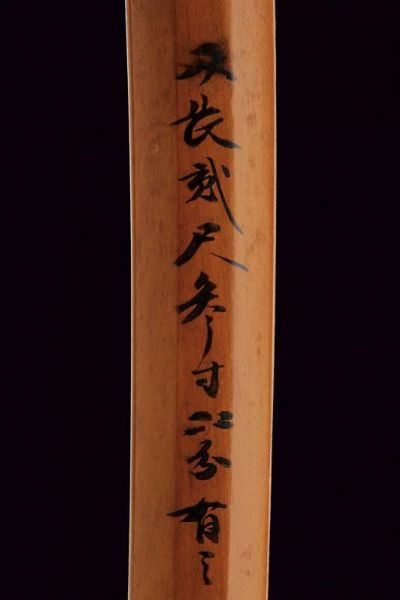 刃長貮尺参寸二分有之